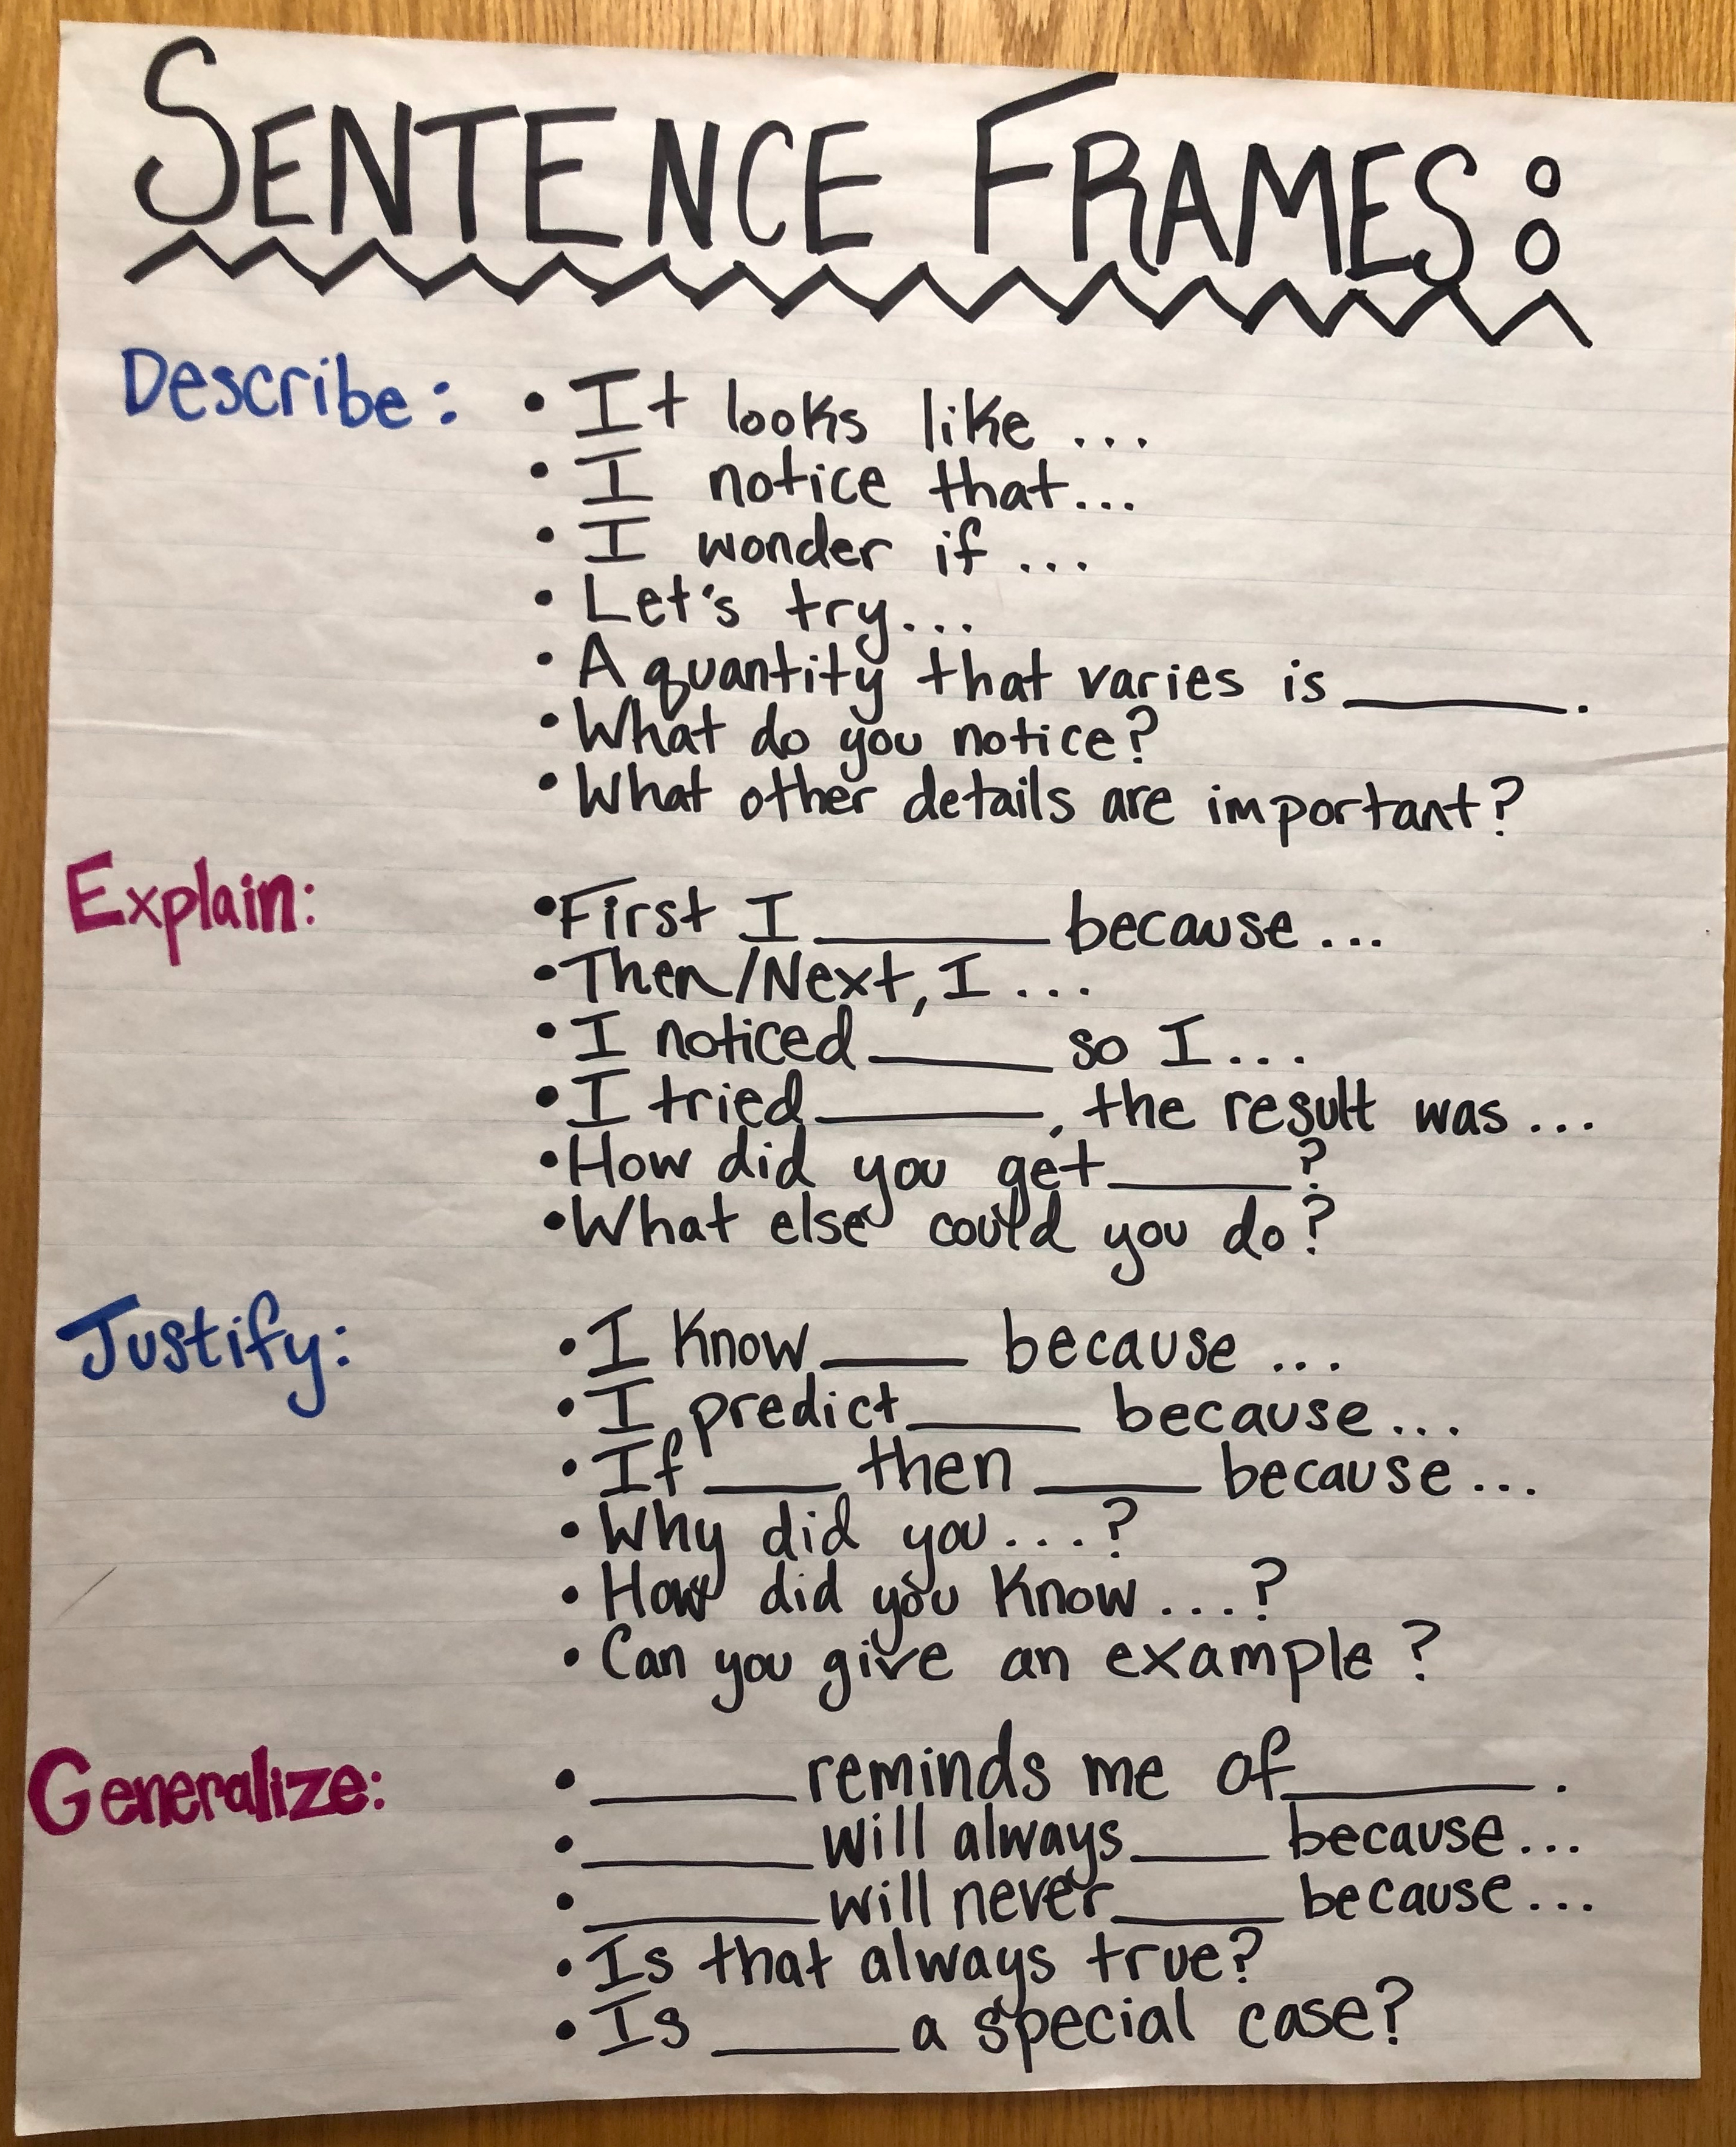 SENTENCE FRAMES:
Describe: • It looks like ...
• I notice that...
• I wonder if ...
• Let's try...
• A quantity that varies is ______.
• What do you notice?
• What other details are important?
Explain: • First I ______ because ...
• Then/Next, I ...
• I noticed ______ so I...
• I tried ______, the result was ...
• How did you get ______?
• What else could you do?
Justify: • I know ____ because ...
• I predict ____ because...
• If ____ then ____ because ...
• Why did you....?
• How did you know ...?
• Can you give an example?
Generalize: • ______ reminds me of ______.
• ______ will always ____ because...
• ______ will never ____ because...
• Is that always true?
• Is ______ a special case?